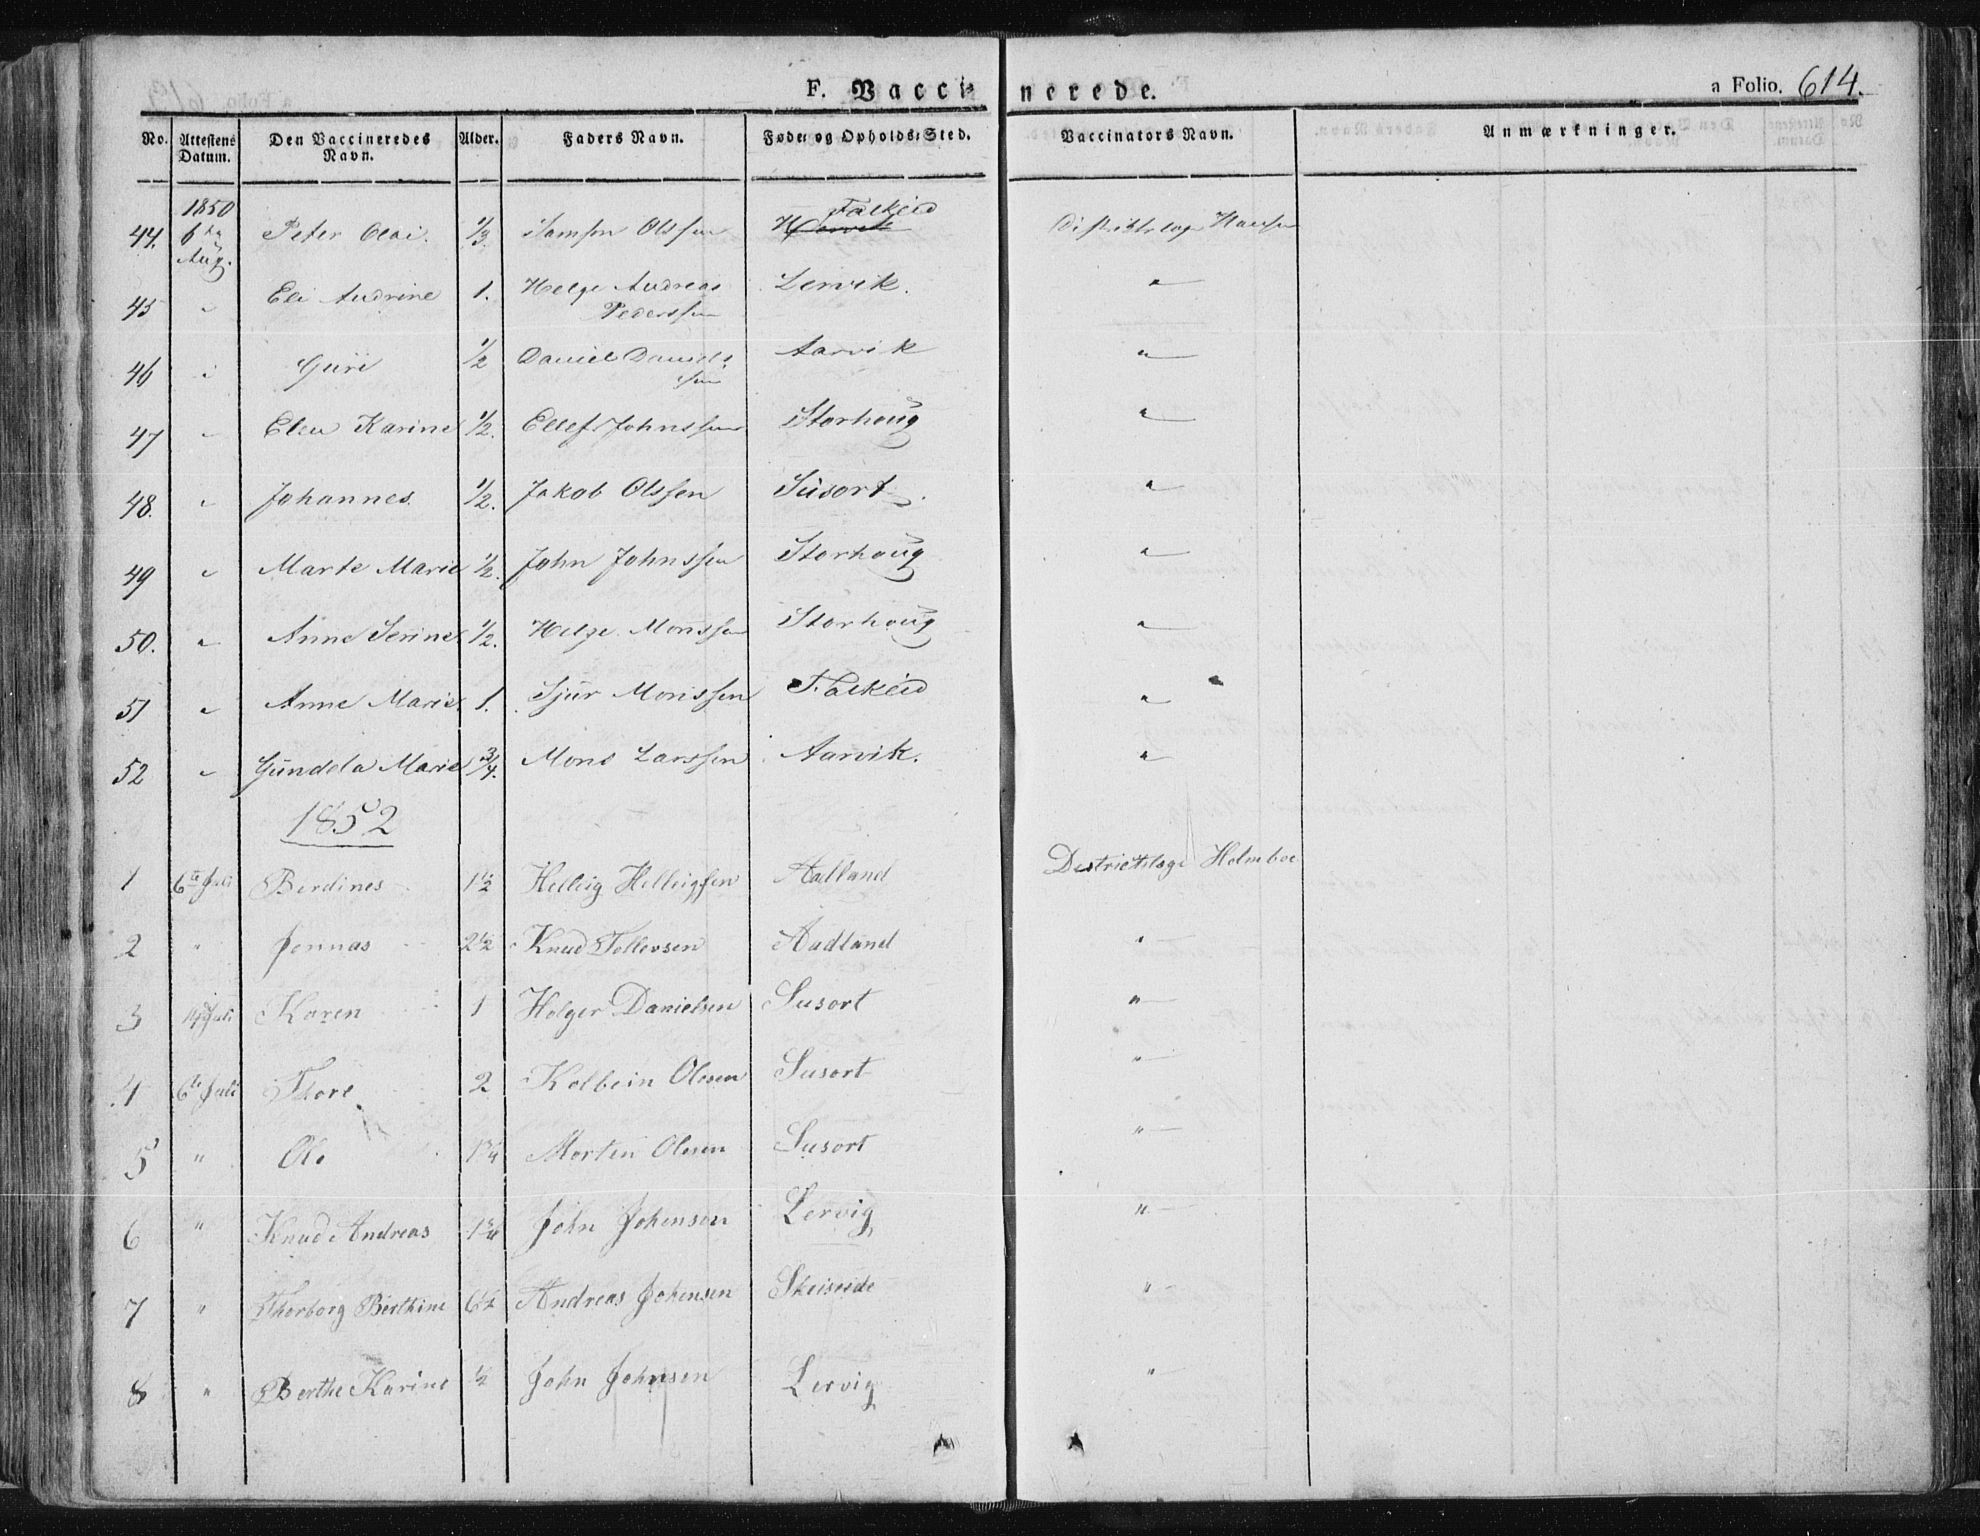 F. Vaccinerede. a Folio. 614.
No. Attestens Datum. Den Vaccineredes Navn. Alder. Faders Navn. Føde- og Opholds-Sted. Vaccinators Navn. Anmærkninger.
1850
44. 6te Aug. Peter Olai. 1/3 Samson Olssen Falkeid Hansen
45 " Eli Andrine 1. Helge Andreas Pederssen Lervik.
46 " Guri 1/2 Daniel Davidssen Aarvik "
47 " Elen Karine 1/2. Ellef Johnssen Storhoug "
48. " Johannes. 1/2. Jakob Olssen Susort. "
49 " Marte Marie 1/2. John Johnssen Storhoug "
50. " Anne Serine 1/2. Helge Monssen Storhoug "
51 " Anne Marie. 1. Sjur Monssen Falkeid "
52 " Gundela Marie 3/4. Mons Larssen Aarvik. "
1852
1 6te Juli Berdines 1 1/2 Helleig Helleigsen Aalland Districtslæge Holmboe
2 " Jonnas 2 1/2 Knud Tollevsen Aadland "
3 Juli Karen 1 Holger Danielsen Susort "
4 6te Juli Thore 2 Kolbein Olesen Susort "
5 " Ole 1 3/4 Morten Olesen Susort "
6 " Knud Andreas 1 3/4 John Johensen Lervig "
7 " Thorborg Berthine 6 1/2 Andreas Johensen Skeiseide "
8 " Berthe Karine 1/2 John Johnsen Lervig "